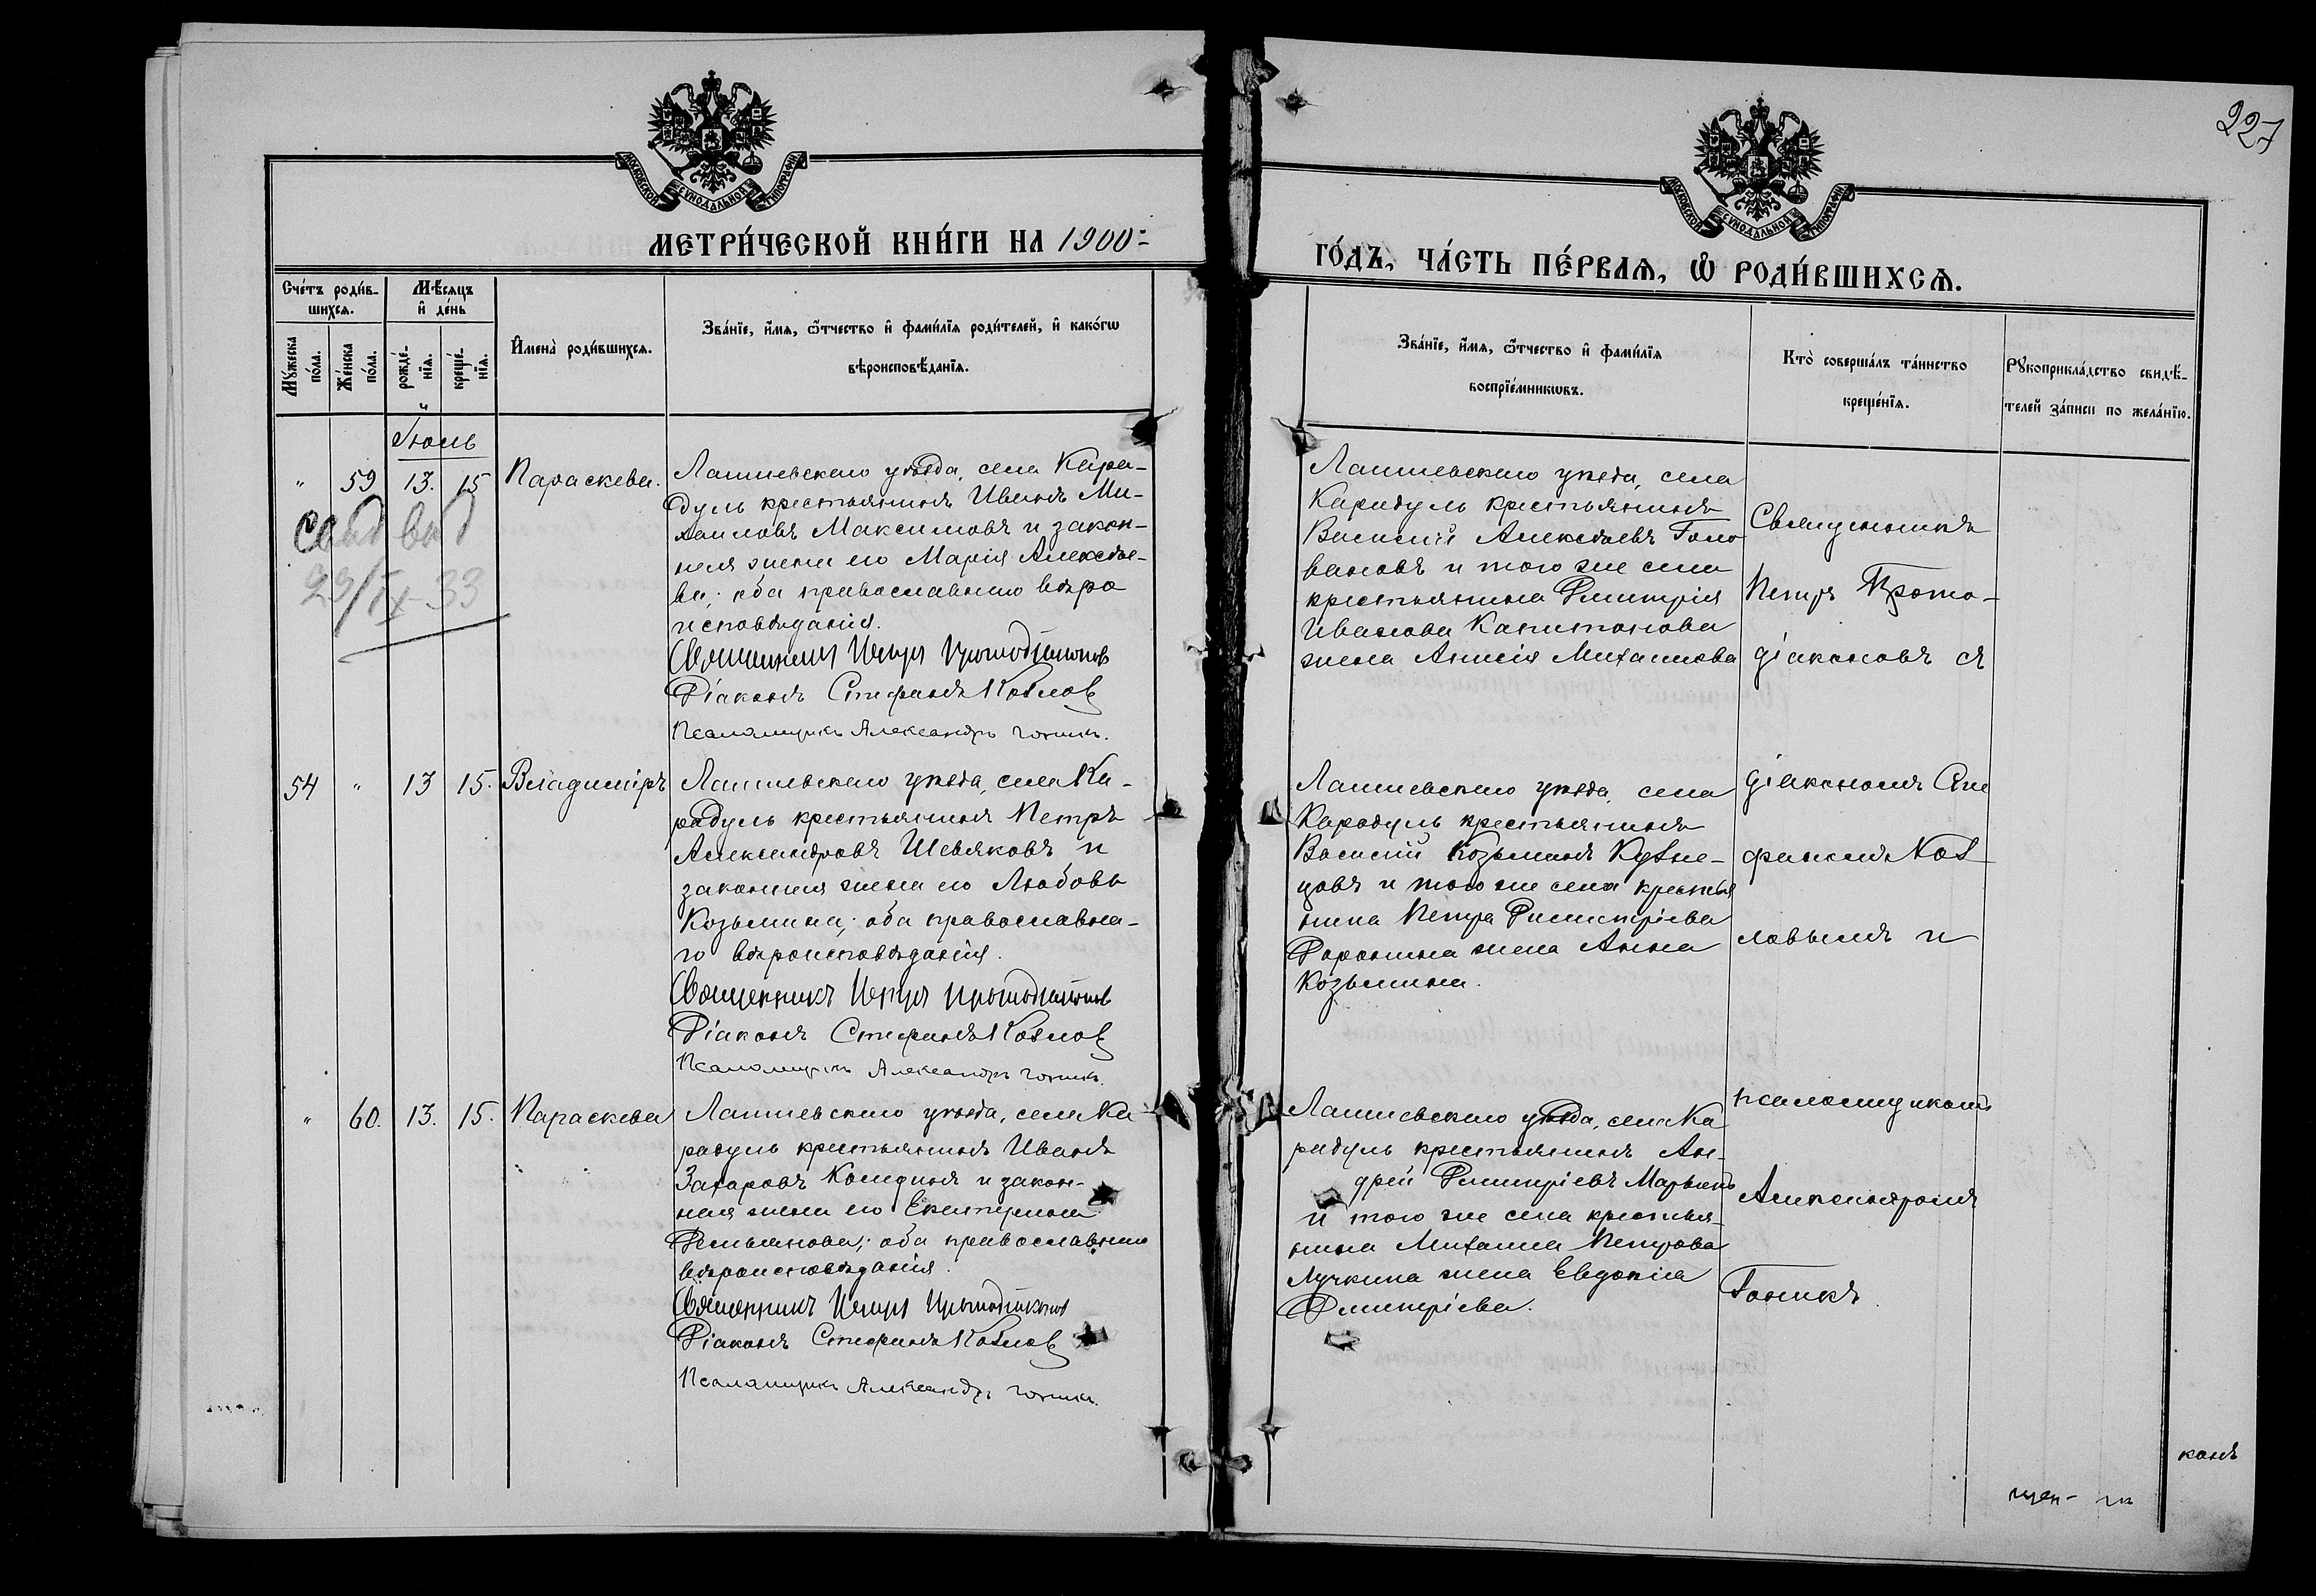 227
МОСКОВСКОЙ СѴНОДАЛЬНОЙ ТИПОГРАФІИ
МОСКОВСКОЙ СѴНОДАЛЬНОЙ ТИПОГРАФІИ
МЕТРИ́ЧЕСКОЙ КНИ́ГИ НА 1900
ГО́ДЪ, ЧА́СТЬ ПЕ́РВАЯ, Ѽ РОДИ́ВШИХСѦ.
Сче́тъ роди́в-
шихсѧ.
Мѣсяцъ
и҆ де́нь
Мꙋ́жеска
по́ла.
Же́нска
по́ла.
рожде́-
нїѧ.
креще́-
нїѧ.
И҆мена̀ роди́вшихсѧ.
Зва́нїе, и҆́мѧ, ѻ҆́тчество и҆ фами́лїѧ роди́телей, и҆ како́гѡ
вѣроисповѣ́данїѧ.
Зва́нїе, и҆́мѧ, ѻ҆́тчество и҆ фами́лїѧ
воспрїе́мникѡвъ.
Кто̀ соверша́лъ та́инство
креще́нїѧ.
Рꙋкоприкла́дство свидѣ́-
телей за́писи по жела́нїю.
Іюль
" 59 13. 15 Параскева.
Лаишевскаго уѣзда, села Кара-
дуль крестьянинъ Иванъ Ми-
хаиловъ Максимовъ и закон-
ная жена его Марія Алексѣе-
ва; оба православнаго вѣро
исповѣданія.
Священникъ Петръ Протодіаконов
Діаконъ Стефанъ Козлов
Псаломщикъ Александръ Гоникъ.
29/IX-33
Лаишевскаго уѣзда, села
Карадуль крестьянинъ
Василій Алексѣевъ Голо
вановъ и того же села
крестьянина Димитрія
Иванова Капитонова
жена Анисія Михаилова
Священникъ
Петръ Прото-
діаконовъ съ
54 " 13 15. Владиміръ
Лаишевскаго уѣзда, села Ка-
радуль крестьянинъ Петръ
Александровъ Шевяковъ и
законная жена его Любовь
Козьмина; оба православна-
го вѣроисповѣданія.
Священникъ Петръ Протодіаконов
Діаконъ Стефанъ Козлов
Псаломщикъ Александръ Гоникъ.
Лаишевскаго уѣзда, села
Карадуль крестьянинъ
Василій Козьминъ Кузне-
цовъ и того же села крестья
нина Петра Димитріева
Доронина жена Анна
Козьмина.
діакономъ Сте
фаномъ Коз-
ловымъ и
" 60. 13. 15. Параскева
Лаишевскаго уѣзда, села Ка
радуль крестьянинъ Иванъ
Захаровъ и закон-
ная жена его Екатерина
Демьянова; оба православнаго
вѣроисповѣданія.
Священникъ Петръ Протодіаконов
Діаконъ Стефанъ Козлов
Псаломщикъ Александръ Гоникъ.
Лаишевскаго уѣзда, села Ка
радуль крестьянинъ Ан-
дрей Димитріевъ Марьинъ
и того же села крестья-
нина Михаила Петрова
Лучкина жена Евдокія
Димитріева.
псаломщикомъ
Александромъ
Гоникъ.
конъ